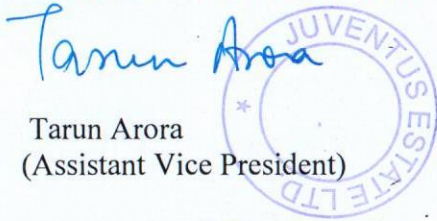 Tarun Arora
JUVENTUS ESTATE LTD
*
Tarun Arora
(Assistant Vice President)